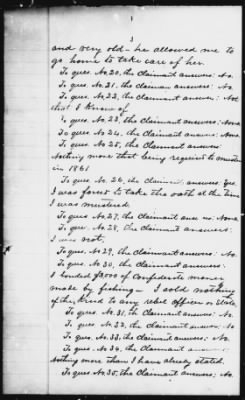 3
and very old - he allowed me to
go home to take care of her.
To ques. No. 20, the claimant answers: No.
To ques. No. 21, the claimant answers: No.
To ques. No. 22, the claimant answers: Not
that I know of.
To ques. No. 23, the claimant answers: None
To ques. No. 24, the claimant answers: None
To ques. No. 25, the claimant answers:
Nothing more that being required to muster
in 1861
To ques. No. 26, the claimant answers: Yes
I was forced to take the oath at the time
I was mustered.
To ques. No. 27, the claimant answers: None
To ques. No. 28, the claimant answers:
I was not.
To ques. No. 29, the claimant answers: No.
To ques. No. 30, the claimant answers:
I bonded $ of Confederate money
made by fishing - I sold nothing
of the kind to any rebel officer or State
To ques. No. 31, the claimant answers: No.
To ques. No. 32, the claimant answers: No
To ques. No. 33, the claimant answers: No.
To ques. No. 34, the claimant answers:
Nothing more than I have already stated.
To ques. No. 35, the claimant answers: No;